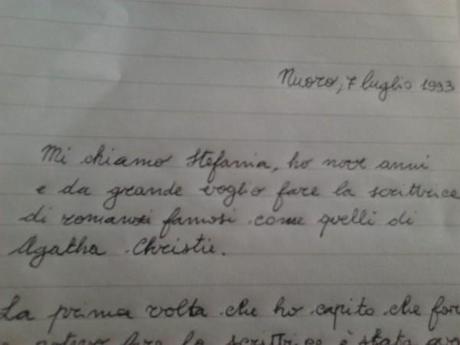 Nuoro, 7 luglio 1993
Mi chiamo Stefania, ho nove anni
e da grande voglio fare la scrittrice
di romanzi famosi come quelli di
Agatha Christie.
La prima volta che ho capito che for
potevo fare la scrittrice è stata